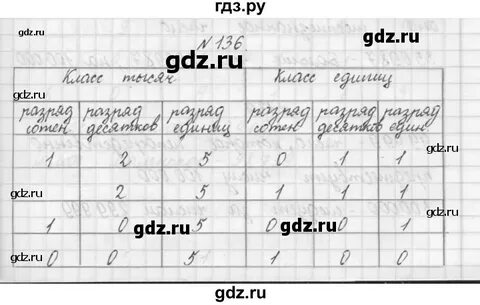 гдз.ру
N 136
Класс тысяч Класс единиц
разряд сотен разряд десятков разряд единиц разряд сотен разряд десятков разряд един.
1 2 5 0 1 1
2 5 1 1 1
1 0 5 0 0 1
0 0 5 1 0 0
gdz.ru gdz.ru gdz.ru
gdz.ru gdz.ru
gdz.ru gdz.ru gdz.ru
gdz.ru gdz.ru
gdz.ru gdz.ru gdz.ru
gdz.ru